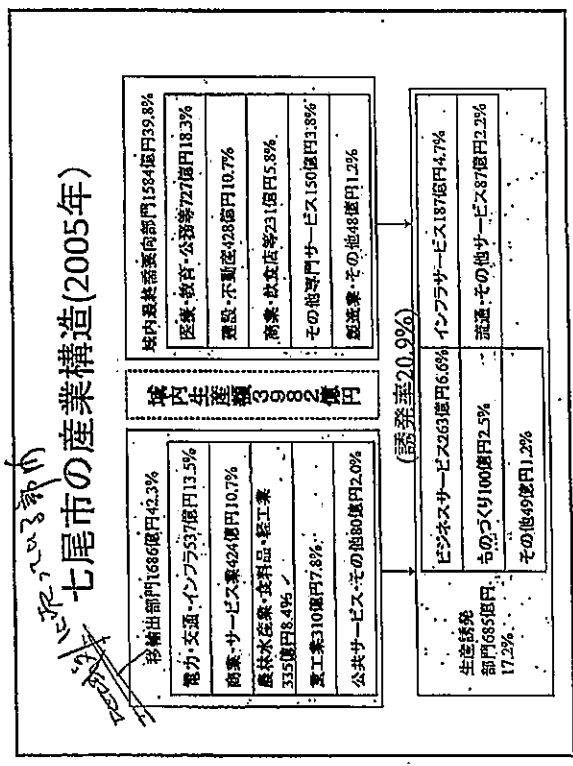 七尾市の産業構造(2005年)
移輸出部門1686億円42.3%
電力・交通・インフラ537億円13.5%
商業・サービス業424億円10.7%
農林水産業・食料品・軽工業
335億円8.4%
重工業310億円7.8%
公共サービス・その他80億円2.0%
域内生産額3982億円
域内最終需要向部門1584億円39.8%
医療・教育・公務等727億円18.3%
建設・不動産428億円10.7%
商業・飲食店等231億円5.8%
その他専門サービス150億円3.8%
製造業・その他48億円1.2%
(誘発率20.9%)
生産誘発
部門685億円
17.2%
ビジネスサービス263億円6.6%
インフラサービス187億円4.7%
ものづくり100億円2.5%
流通・その他サービス87億円2.2%
その他49億円1.2%